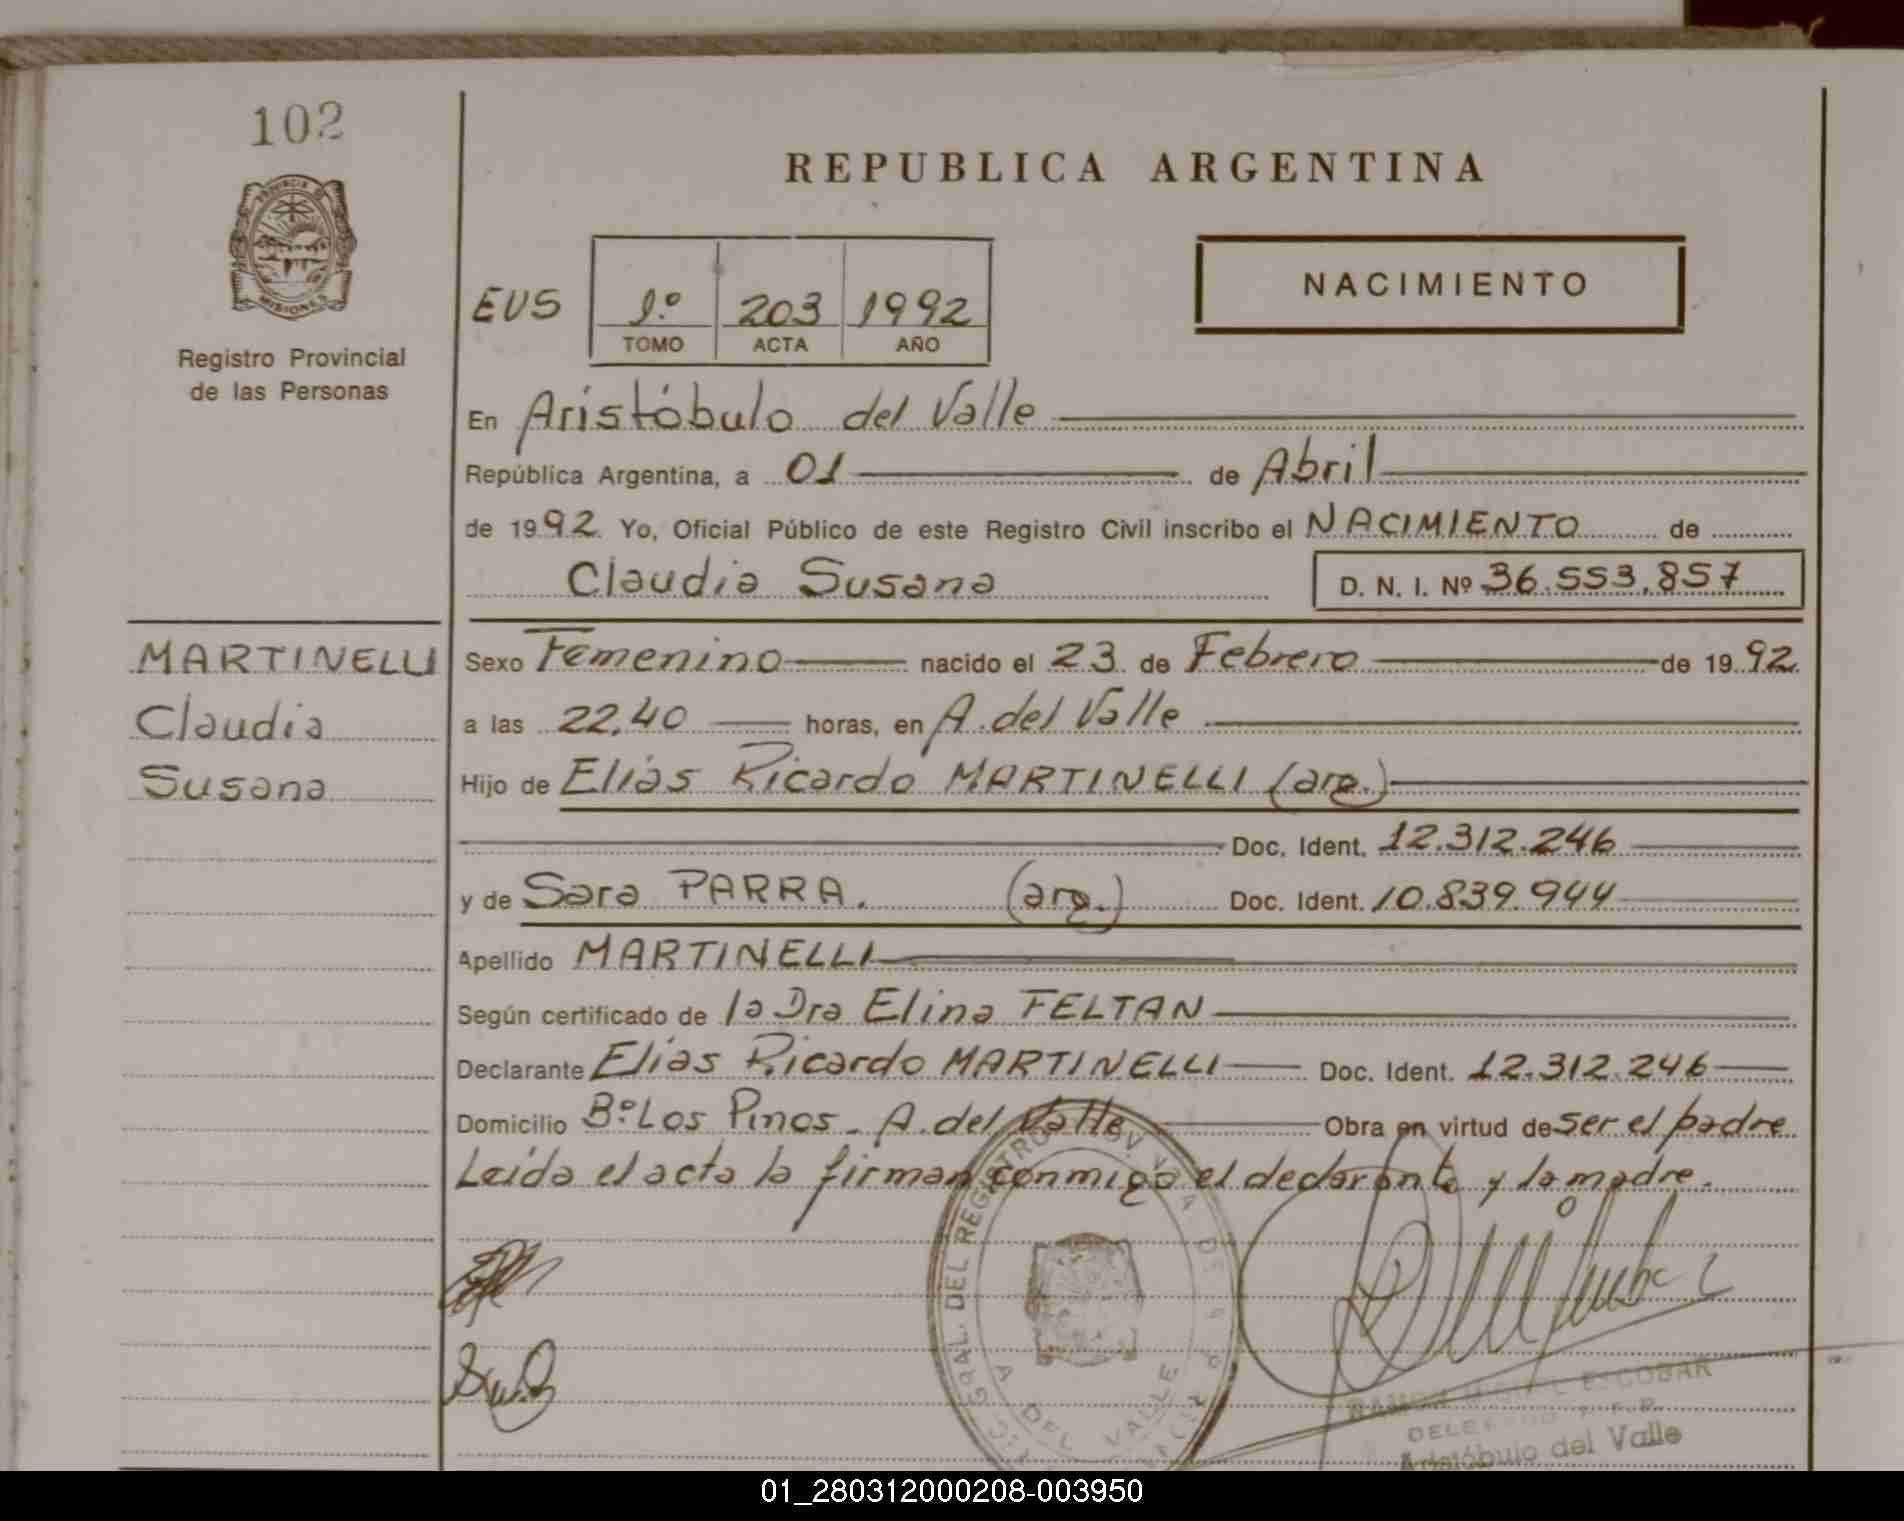 102
PROVINCIA DE
MISIONES
Registro Provincial
de las Personas
MARTINELLI
Claudia
Susana
REPUBLICA ARGENTINA
EUS
1º 203 1992
TOMO ACTA AÑO
NACIMIENTO
En Aristóbulo del Valle
República Argentina, a 01 de Abril
de 1992 Yo, Oficial Público de este Registro Civil inscribo el NACIMIENTO de
Claudia Susana D. N. I. Nº 36.553.857
Sexo Femenino nacido el 23 de Febrero de 1992
a las 22,40 horas, en A. del Valle
Hijo de Elias Ricardo MARTINELLI (arg.)
Doc. Ident. 12.312.246
y de Sara PARRA. (arg.) Doc. Ident. 10.839.944
Apellido MARTINELLI
Según certificado de la Dra Elina FELTAN
Declarante Elias Ricardo MARTINELLI Doc. Ident. 12.312.246
Domicilio Bº Los Pinos - A. del Valle Obra en virtud de ser el padre
Leída el acta la firman conmigo el declarante y la madre.
GRAL. DEL REGISTRO
A DEL VALLE
RAMON MIGUEL ESCOBAR
Aristóbulo del Valle
01_280312000208-003950